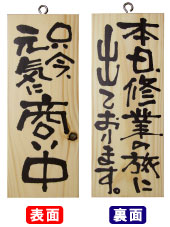 只今、
元気に
商い中
本日、修業の旅に
出ております。
表面
裏面